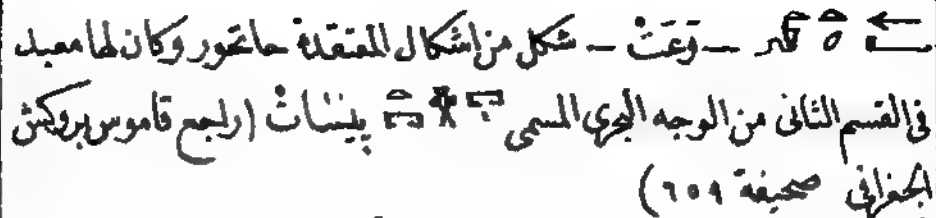 ـ وَعَتْ ـ شكل من اشكال المعتقدة حاتحور وكان لها معبد
فى القسم الثانى من الوجه البحرى المسمى پينسَاتْ (راجع قاموس بروكش
الجغرافى صحيفة ٦٥٩)